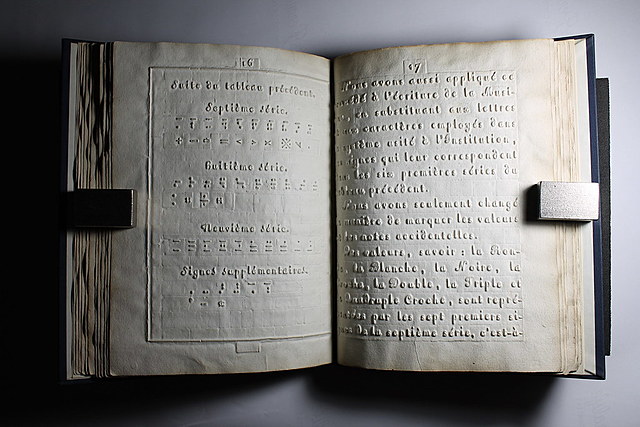 16
Suite du tableau précédent.
Septième série.
Huitième série.
Neuvième série.
Signes supplémentaires.
17
Nous avons aussi appliqué ce
à l'écriture de la Musi-
en substituant aux lettres
caractères employés dans
usité à l'Institution,
signes qui leur correspondent
les six premières séries du
précédent.
Nous avons seulement changé
manière de marquer les valeurs
notes accidentelles.
valeurs, savoir: la Ron-
la Blanche, la Noire, la
la Double, la Triple et
Quadruple Croche, sont repré-
par les sept premiers si-
de la septième série, c'est-à-